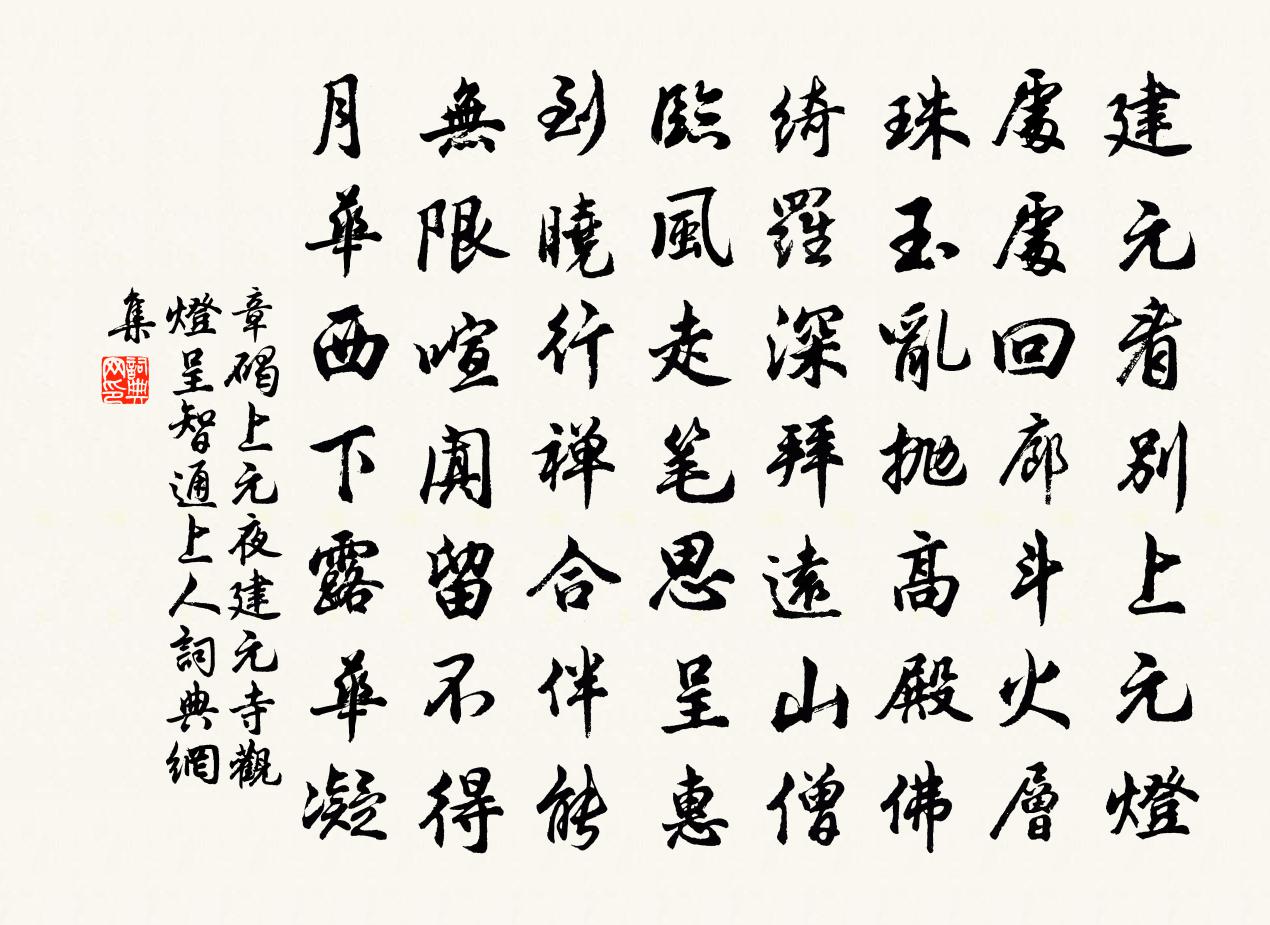 建元看別上元燈
處處回廊斗火層
珠玉亂拋高殿佛
綺羅深拜遠山僧
臨風走笔思呈惠
到曉行禅合伴能
無限喧闐留不得
月華西下露華凝
章碣上元夜建元寺觀
燈呈智通上人詞典網
集
詞典
网印